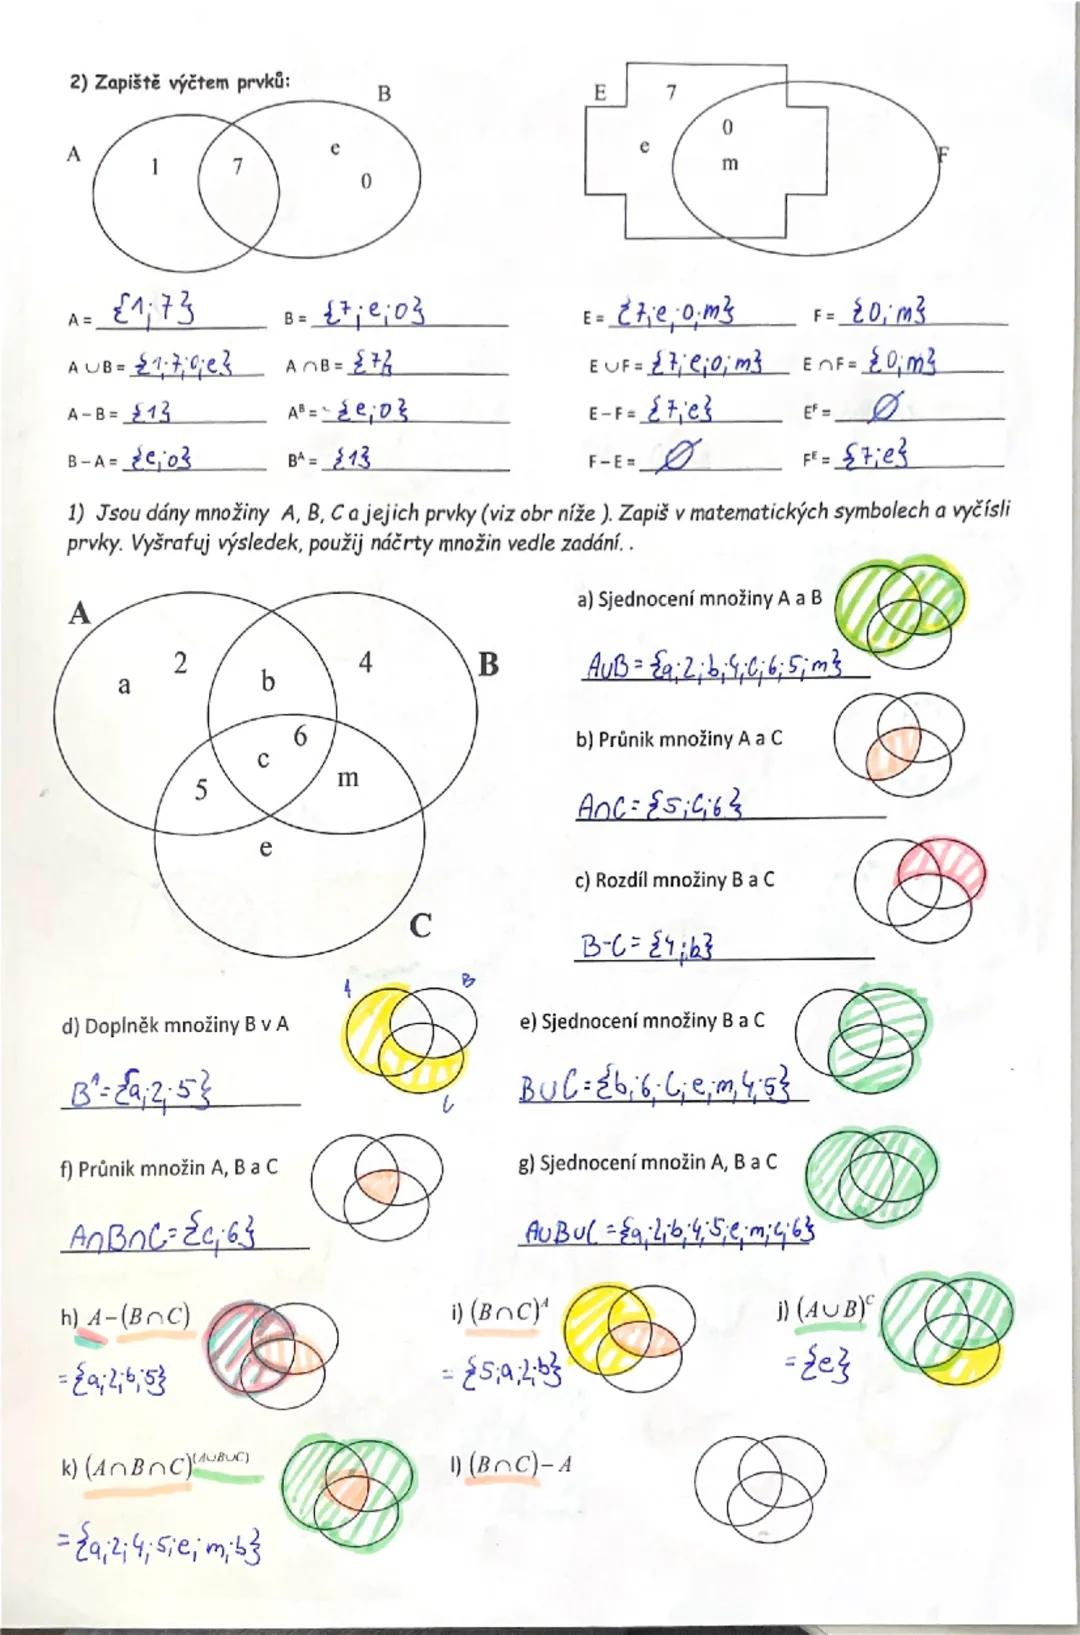 2) Zapiště výčtem prvků:
A B 1 7 e 0
E F 7 e 0 m
A = {1;7} B = {7;e;0} E = {7;e;0;m} F = {0;m}
A∪B = {1;7;0;e} A∩B = {7} E∪F = {7;e;0;m} E∩F = {0;m}
A-B = {1} Aᴮ = {e;0} E-F = {7;e} Eᶠ = Ø
B-A = {e;0} Bᴬ = {1} F-E = Ø Fᴱ = {7;e}
1) Jsou dány množiny A, B, C a jejich prvky (viz obr níže ). Zapiš v matematických symbolech a vyčísli
prvky. Vyšrafuj výsledek, použij náčrty množin vedle zadání. .
A B C a 2 b 4 6 c 5 m e
a) Sjednocení množiny A a B
A∪B = {a;2;b;4;c;6;5;m}
b) Průnik množiny A a C
A∩C = {5;c;6}
c) Rozdíl množiny B a C
B-C = {4;b}
d) Doplněk množiny B v A
A B C
Bᴬ = {a;2;5}
e) Sjednocení množiny B a C
B∪C = {b;6;c;e;m;4;5}
f) Průnik množin A, B a C
A∩B∩C = {c;6}
g) Sjednocení množin A, B a C
A∪B∪C = {a;2;b;4;5;e;m;c;6}
h) A-(B∩C)
= {a;2;b;5}
i) (B∩C)ᴬ
= {5;a;2;b}
j) (A∪B)ᶜ
= {e}
k) (A∩B∩C)^(A∪B∪C)
= {a;2;4;5;e;m;b}
l) (B∩C)-A